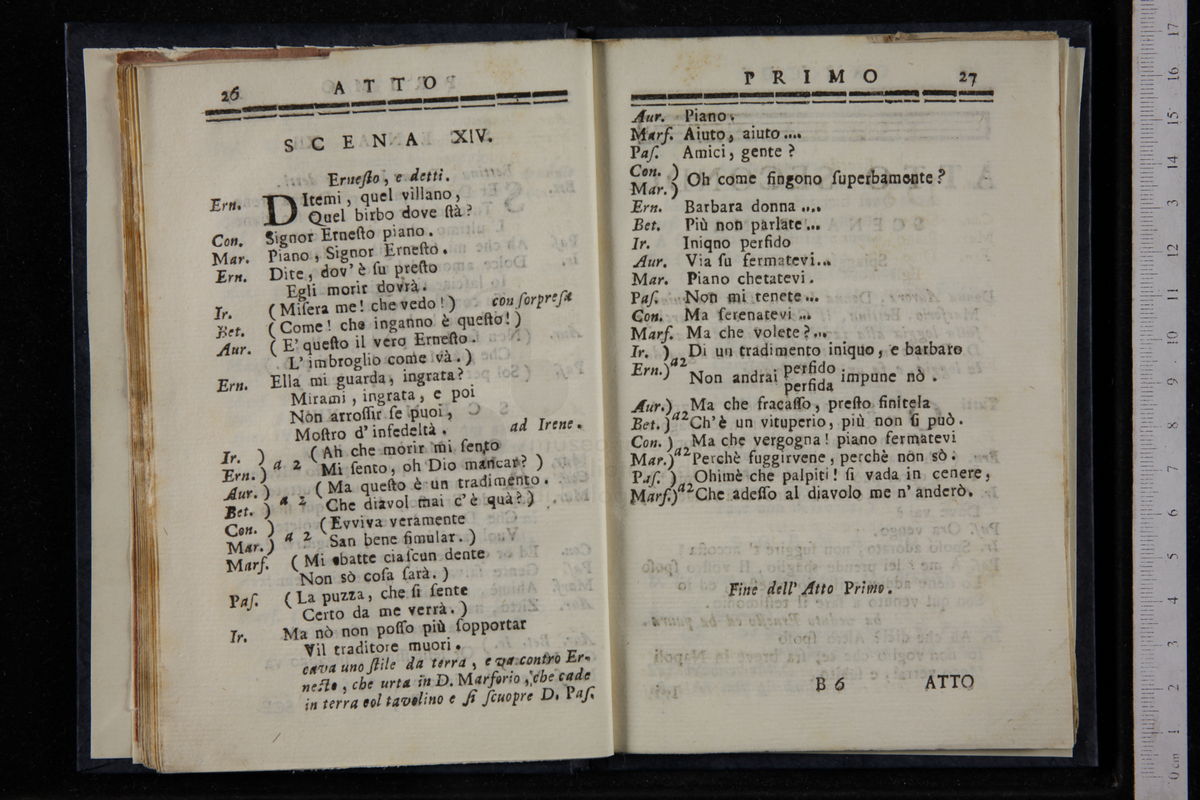 26 ATTO
SCENA XIV.
Ernesto, e detti.
Ern. DItemi, quel villano,
Quel birbo dove stà?
Con. Signor Ernesto piano.
Mar. Piano, Signor Ernesto.
Ern. Dite, dov' è su presto
Egli morir dovrà.
Ir. (Misera me! che vedo!) con sorpresa
Bet. (Come! che inganno è questo!)
Aur. (E' questo il vero Ernesto.
L' imbroglio come và.)
Ern. Ella mi guarda, ingrata?
Mirami, ingrata, e poi
Non arrossir se puoi,
Mostro d' infedeltà. ad Irene.
Ir. ) (Ah che morir mi sento
Ern.) a 2 Mi sento, oh Dio mancar?)
Aur.) (Ma questo è un tradimento.
Bet. ) a 2 Che diavol mai c' è quà?)
Con. ) (Evviva veramente
Mar.) a 2 San bene simular.)
Marf. (Mi sbatte ciascun dente
Non sò cosa sarà.)
Pas. (La puzza, che si sente
Certo da me verrà.)
Ir. Ma nò non posso più sopportar
Vil traditore muori.
cava uno stile da terra, e va contro Er-
nesto, che urta in D. Marforio, che cade
in terra col tavolino e si scuopre D. Pas.
PRIMO 27
Aur. Piano.
Marf. Aiuto, aiuto....
Pas. Amici, gente?
Con. )
Mar.) Oh come fingono superbamente?
Ern. Barbara donna....
Bet. Più non parlate...
Ir. Iniqno perfido
Aur. Via su fermatevi...
Mar. Piano chetatevi.
Pas. Non mi tenete...
Con. Ma serenatevi...
Marf. Ma che volete?...
Ir. ) Di un tradimento iniquo, e barbaro
Ern.) a2 Non andrai perfido
perfida impune nò.
Aur.) Ma che fracasso, presto finitela
Bet. ) a2 Ch'è un vituperio, più non si può.
Con. ) Ma che vergogna! piano fermatevi
Mar.) a2 Perchè fuggirvene, perchè non sò.
Pas. ) Ohimè che palpiti! si vada in cenere,
Marf.) a2 Che adesso al diavolo me n' anderò.
Fine dell' Atto Primo.
B 6 ATTO